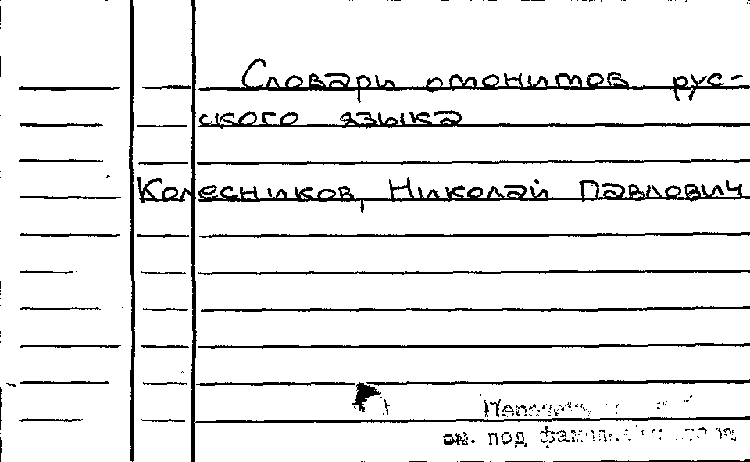 Словарь омонимов рус-
ского языка
Колесников, Николай Павлович
см. под